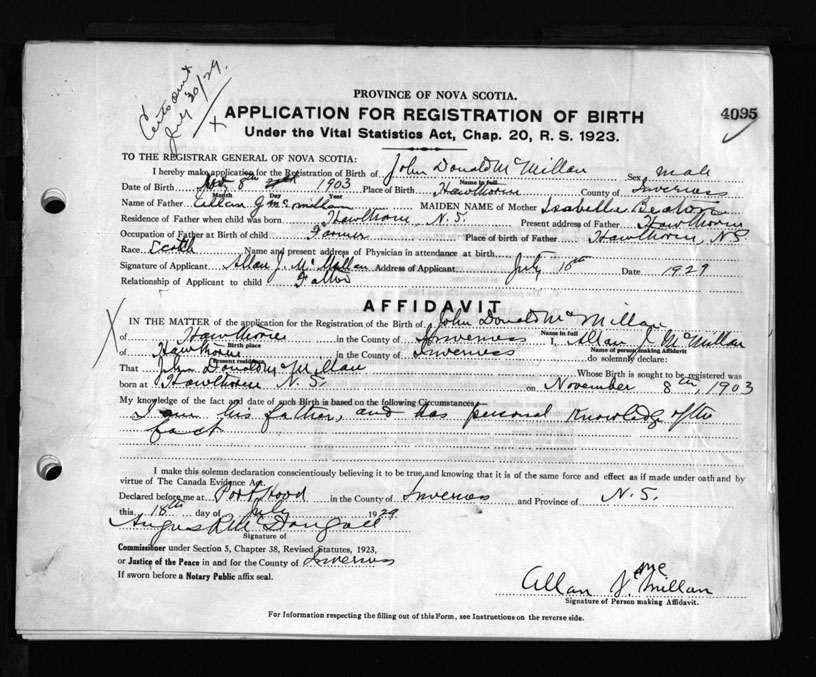 Cert sent
July 30/29.
X
PROVINCE OF NOVA SCOTIA.
APPLICATION FOR REGISTRATION OF BIRTH
4095
Under the Vital Statistics Act, Chap. 20, R. S. 1923.
TO THE REGISTRAR GENERAL OF NOVA SCOTIA:
I hereby make application for the Registration of Birth of John Donald McMillan Sex male
Name in full
Date of Birth Nov 8th 1903 Place of Birth Hawthorne County of Inverness
Month Day Year
Name of Father Allan J McMillan MAIDEN NAME of Mother Isabella Beaton
Residence of Father when child was born Hawthorne, N.S. Present address of Father Hawthorne
Occupation of Father at Birth of child Farmer Place of birth of Father Hawthorne, N.S.
Race Scotch Name and present address of Physician in attendance at birth
Signature of Applicant Allan J. McMillan Address of Applicant July 18th Date 1929
Relationship of Applicant to child Father
AFFIDAVIT
IN THE MATTER of the application for the Registration of the Birth of John Donald McMillan
Name in full
of Hawthorne in the County of Inverness I, Allan J. McMillan
Birth place
Name of person making Affidavit
of Hawthorne in the County of Inverness do solemnly declare:
Present residence
That John Donald McMillan Whose Birth is sought to be registered was
born at Hawthorne N.S. on November 8th, 1903
My knowledge of the fact and date of such Birth is based on the following Circumstances:
I am his father, and has personal knowledge of the
fact
I make this solemn declaration conscientiously believing it to be true, and knowing that it is of the same force and effect as if made under oath and by
virtue of The Canada Evidence Act.
Declared before me at Port Hood in the County of Inverness and Province of N.S.
this 18th day of July 1929
Angus McDougall
Signature of
Commissioner under Section 5, Chapter 38, Revised Statutes, 1923,
or Justice of the Peace in and for the County of Inverness
If sworn before a Notary Public affix seal.
Allan J. McMillan
Signature of Person making Affidavit.
For Information respecting the filling out of this Form, see Instructions on the reverse side.